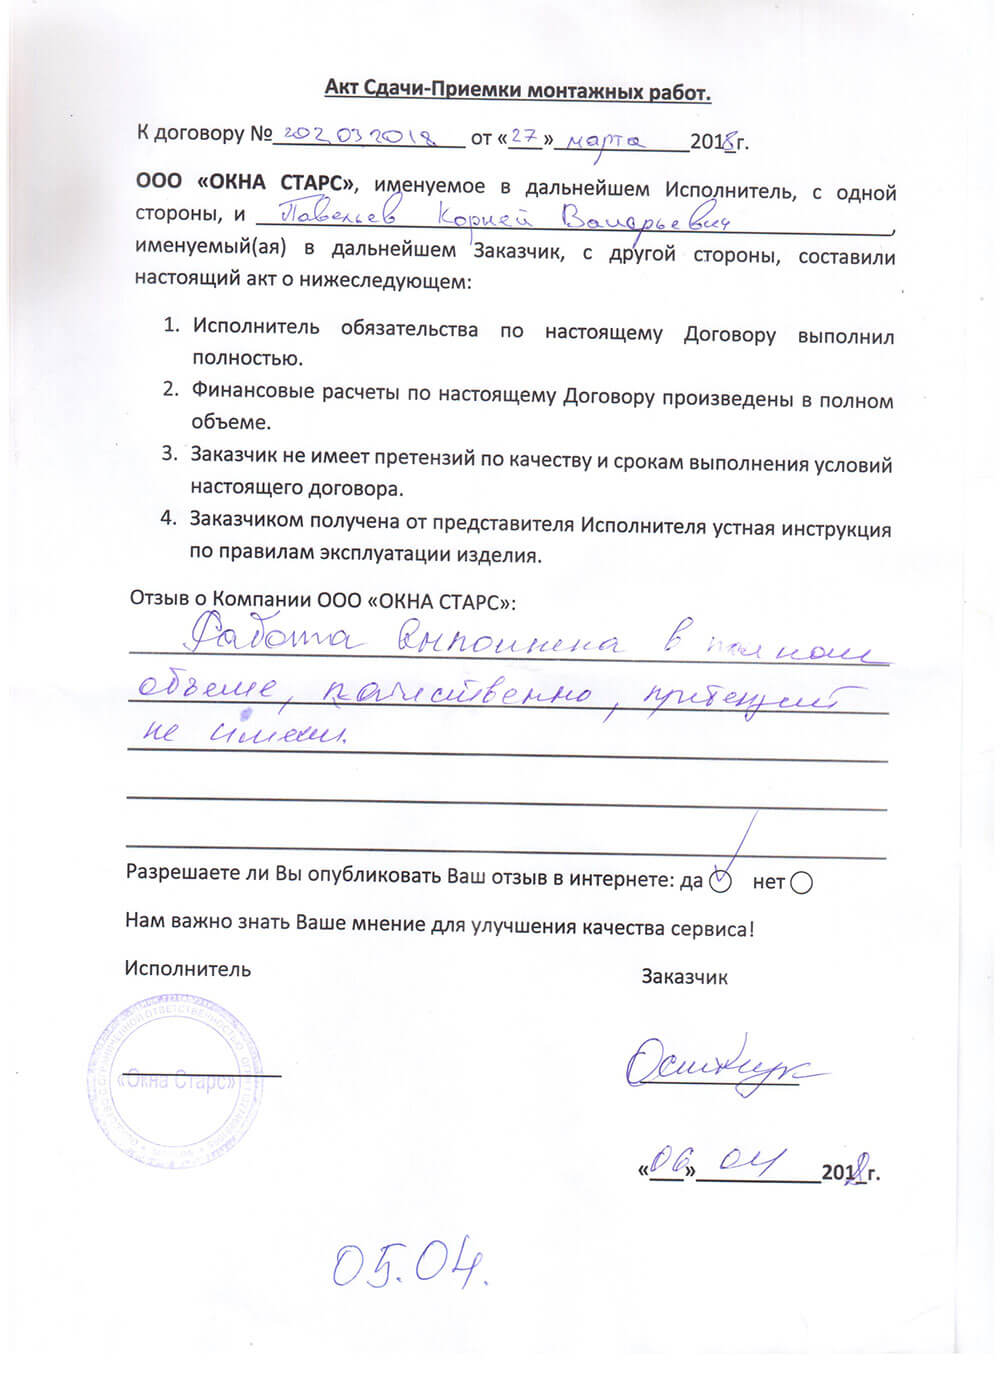 Акт Сдачи-Приемки монтажных работ.
К договору № 202032018 от «27» марта 2018 г.
ООО «ОКНА СТАРС», именуемое в дальнейшем Исполнитель, с одной
стороны, и Павельев Корней Валерьевич,
именуемый(ая) в дальнейшем Заказчик, с другой стороны, составили
настоящий акт о нижеследующем:
1. Исполнитель обязательства по настоящему Договору выполнил
полностью.
2. Финансовые расчеты по настоящему Договору произведены в полном
объеме.
3. Заказчик не имеет претензий по качеству и срокам выполнения условий
настоящего договора.
4. Заказчиком получена от представителя Исполнителя устная инструкция
по правилам эксплуатации изделия.
Отзыв о Компании ООО «ОКНА СТАРС»:
Работа выполнена в полном
объеме, качественно, притензий
не имеем.
Разрешаете ли Вы опубликовать Ваш отзыв в интернете: да нет
Нам важно знать Ваше мнение для улучшения качества сервиса!
Исполнитель Заказчик
«Окна Старс»
«06» 04 2018 г.
05.04.